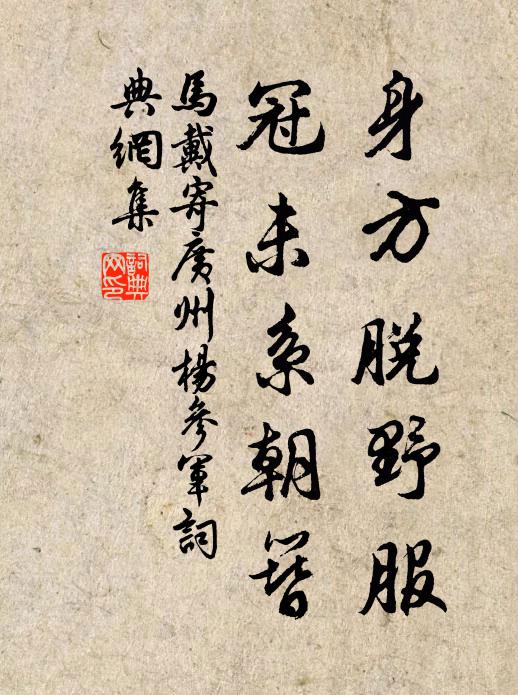 身方脱野服
冠未系朝簪
馬戴寄廣州楊參軍詞
典網集
詞典
网印